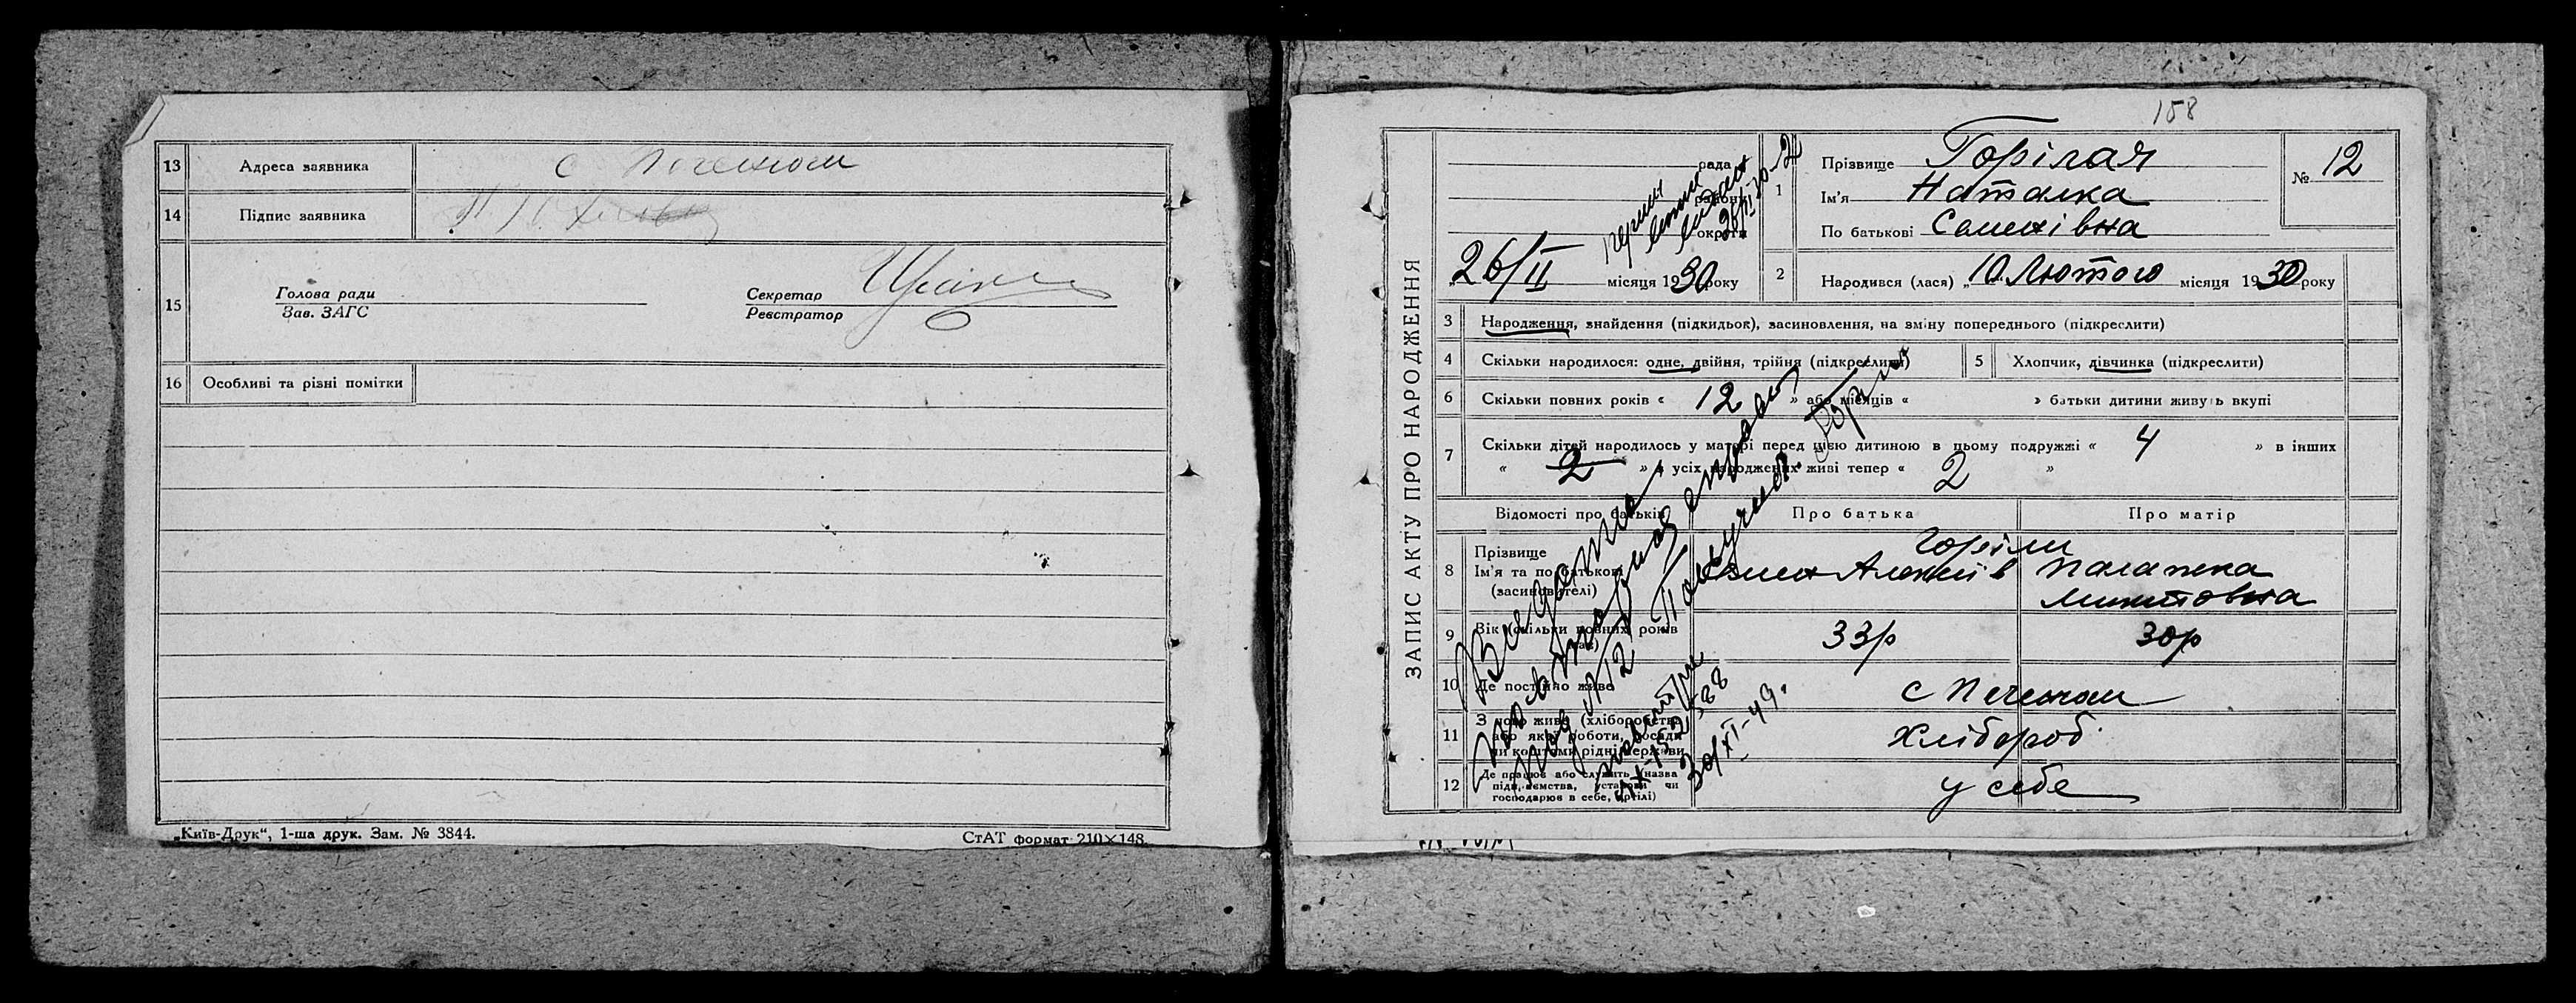 13 Адреса заявника с
14 Підпис заявника
15 Голова ради
Зав. ЗАГС
Секретар
Реєстратор
16 Особливі та різні помітки
„Київ-Друк“, 1-ша друк. Зам. № 3844.
СтАТ формат 210×148.
158
ЗАПИС АКТУ ПРО НАРОДЖЕННЯ
рада
району
округи
26/II місяця 1930 року
1 Прізвище Горілая
Ім'я Наталка
По батькові Семенівна
№ 12
2 Народився (лася) „10 Лютого місяця 1930 року
3 Народження, знайдення (підкидьок), засиновлення, на зміну попереднього (підкреслити)
4 Скільки народилося: одне, двійня, трійня (підкреслити)
5 Хлопчик, дівчинка (підкреслити)
6 Скільки повних років « 12 » або місяців « » батьки дитини живуть вкупі
7 Скільки дітей народилось у матері перед цією дитиною в цьому подружжі « 4 » в інших
« 2 » з усіх народжених живі тепер « 2 »
Відомості про батьків
Про батька
Про матір
8 Прізвище
Ім'я та по батькові
(засиновителі)
Горіли
Семен
Палажка
9 Вік (скільки повних років
33р
30р
10 Де постійно живе
с
11 З чого живе (хліборобства
або якої роботи, посади
чи коштом рідні, держави
Хлібороб
12 Де працює або служить (назва
підприємства, установи чи
господарює в себе, артілі)
у себе
Выдано
повторное
под №12
30/XI-49.